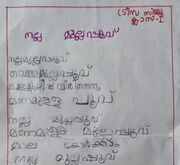 (ടീന സിജു
ക്ലാസ്-I
നല്ല മുല്ലപ്പൂവ്
നല്ലമുല്ലപ്പൂവ്
വെള്ളമുല്ലപ്പൂവ്
വിരിഞ്ഞു
മണമുള്ള പൂവ്
നല്ല മുല്ലപ്പൂവ്
മണമുള്ള മുല്ലപ്പൂവ്
മാല കോർക്കാം
നല്ല മുല്ലപ്പൂവ്